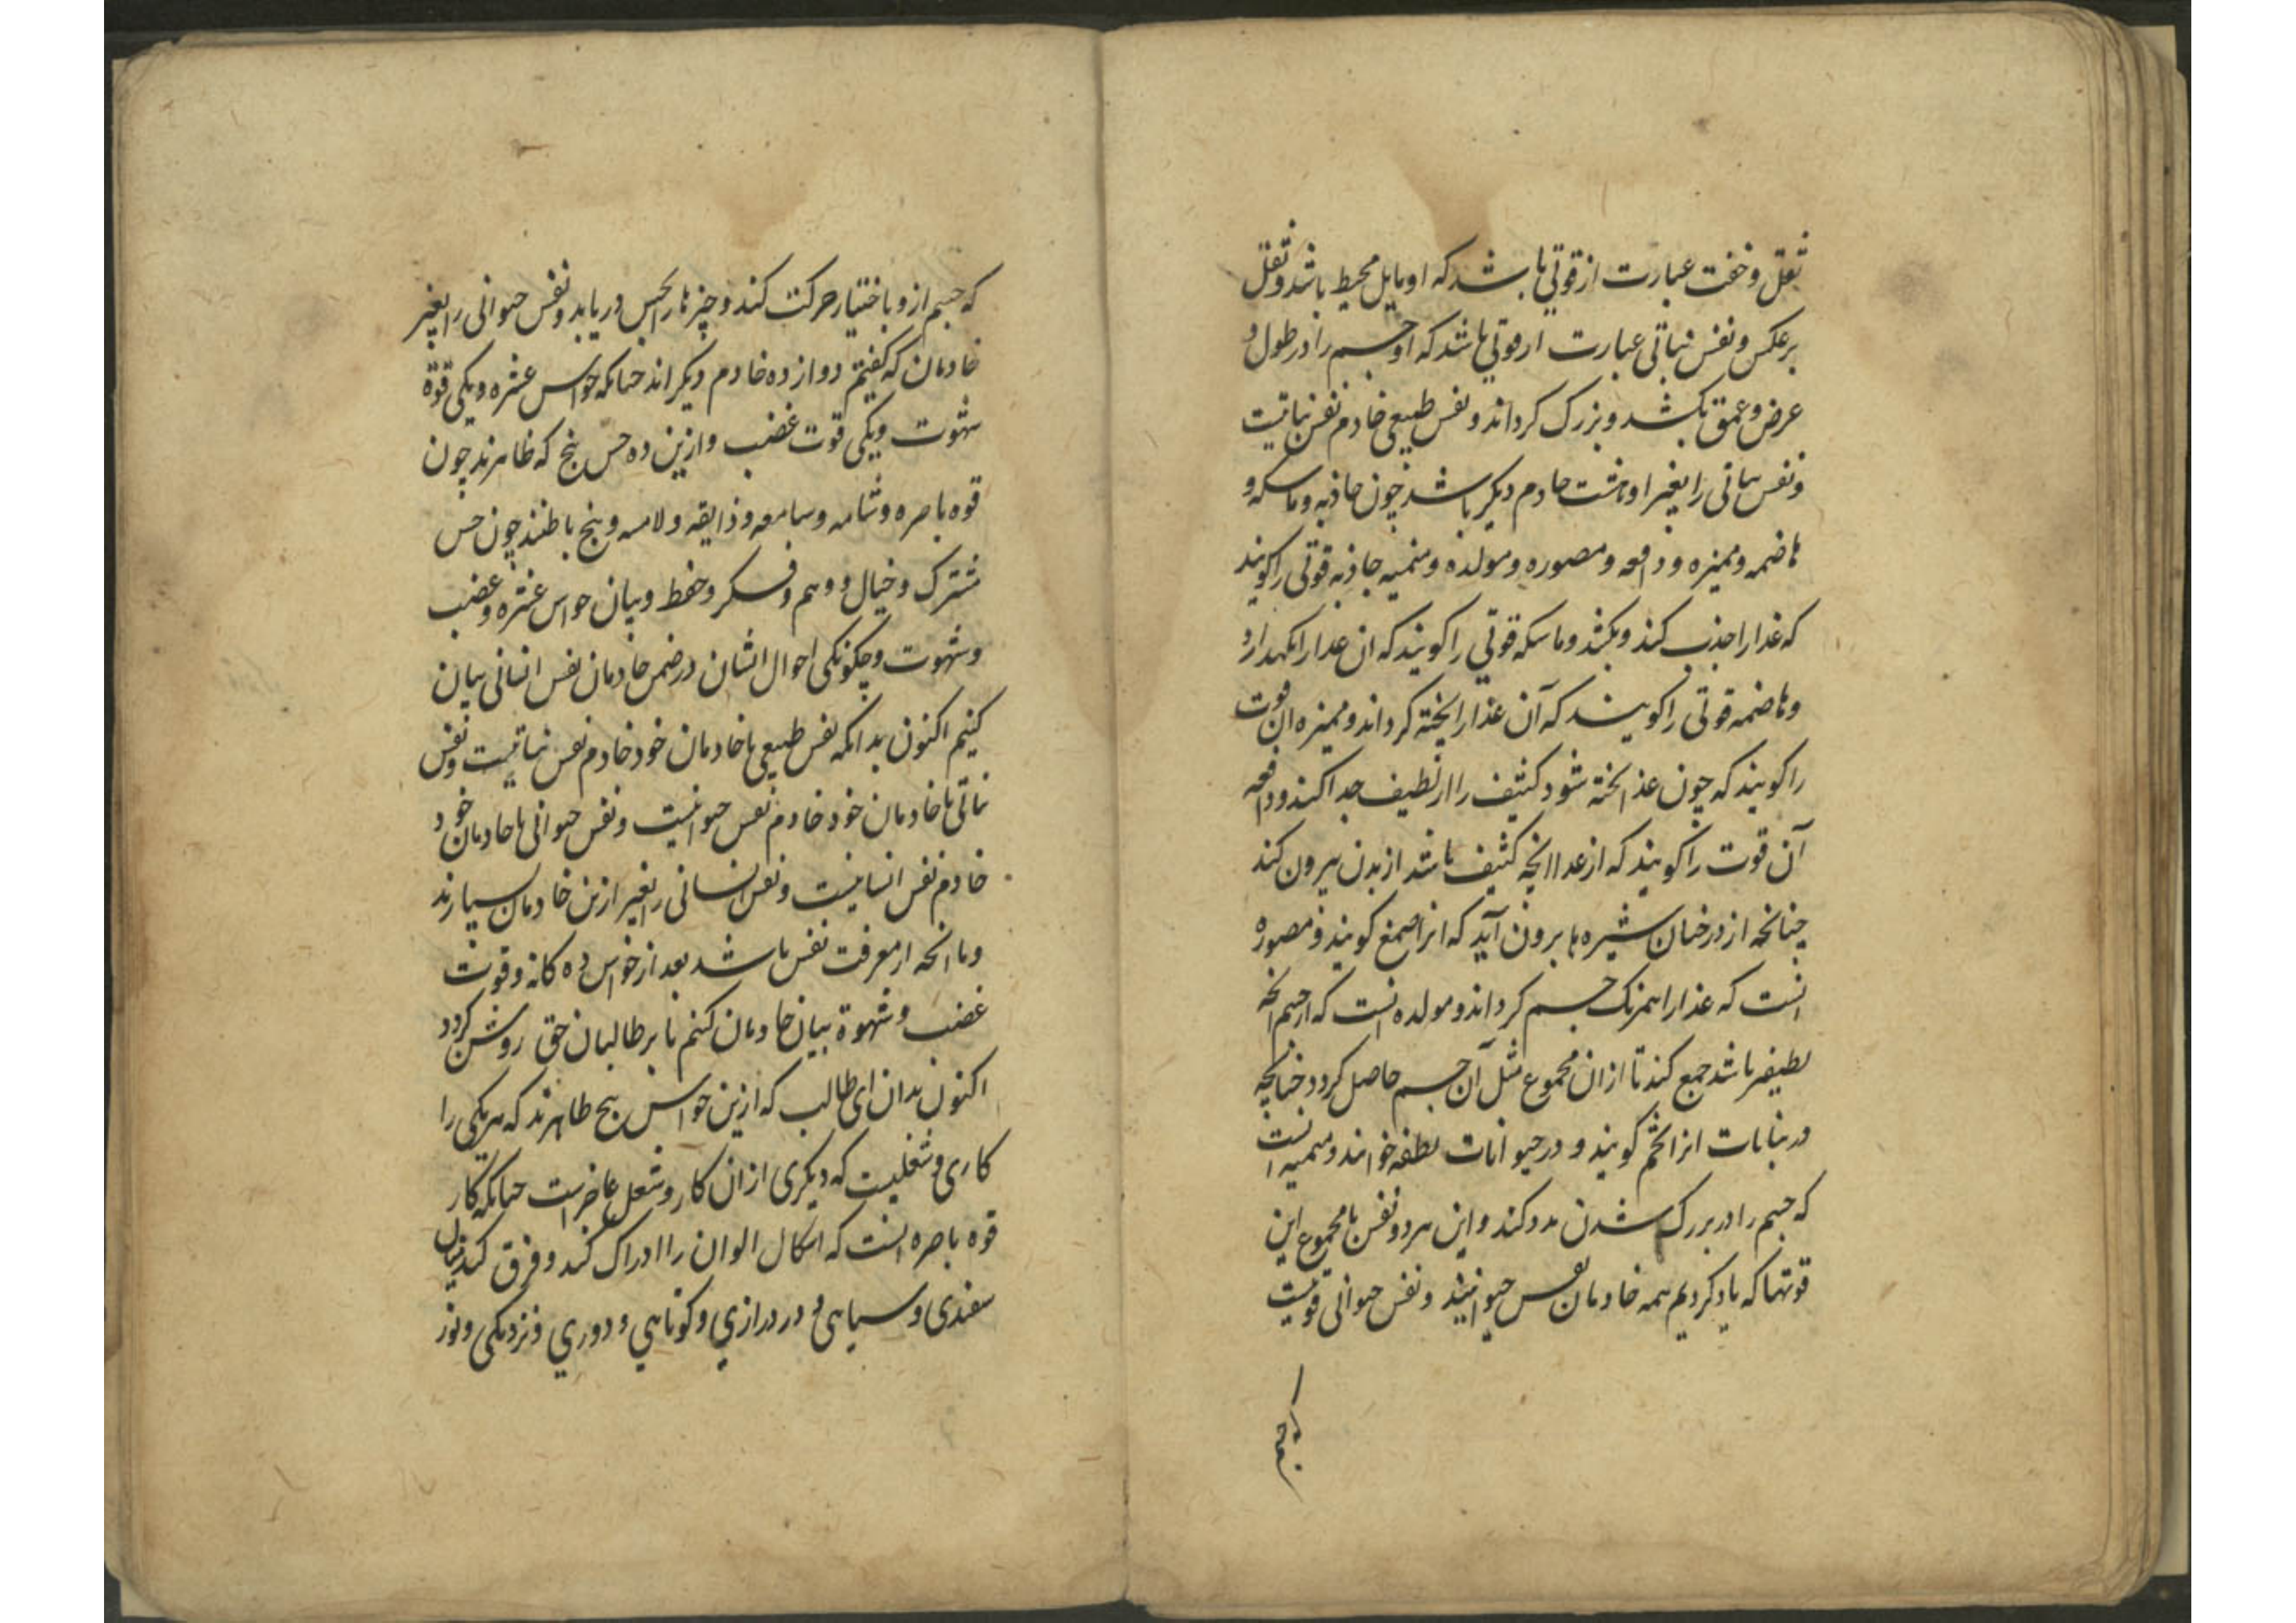 ثقل وخفت عبارت از قوتی باشد که او مایل محیط باشد و ثقل
برعکس و نفس نباتی عبارت از قوتی باشد که او جسم را در طول و
عرض و عمق بکشد و بزرک کرداند و نفس طبیعی خادم نفس نباتیت
و نفس نباتی را بغیر او هشت خادم دیکر باشد چون جاذبه و ماسکه و
هاضمه و ممیزه و دافعه و مصوره و مولده و منمیه جاذبه قوتی را کویند
که غدا را جذب کند و بکشد و ماسکه قوتی را کویند که ان غدا را نکهدارد
و هاضمه قوتی را کویند که آن غذا را پخته کرداند و ممیزه ان قوت
را کویند که چون غذا پخته شود کثیف را از لطیف جدا کند و دافعه
آن قوت را کویند که از غدا انچه کثیف باشد از بدن بیرون کند
چنانچه از درختان شیره ها برون آید که انرا صمغ کویند و مصوره
انست که غدا را همرنک جسم کرداند و مولده انست که از جسم انچه
لطیفتر باشد جمع کند تا از ان مجموع مثل آن جسم حاصل کردد چنانچه
در نباتات انرا تخم کویند و در حیوانات نطفه خوانند و منمیه انست
که جسم را در بزرک شدن مدد کند و این هر دو نفس با مجموع این
قوتها که یاد کردیم همه خادمان نفس حیوانیند و نفس حیوانی قوتیست
که جسم
که جسم ازو باختیار حرکت کند و چیزها را بحس دریابد و نفس حیوانی را بغیر
خادمان که کفتیم دوازده خادم دیکر اند چنانکه حواس عشره و یکی قوة
شهوت و یکی قوت غضب و ازین ده حس پنج که ظاهرند چون
قوه باصره و شامه و سامعه و ذایقه و لامسه و پنج باطنند چون حس
مشترک و خیال و وهم و فکر و حفظ و بیان حواس عشره و غضب
و شهوت و چکونکی احوال ایشان در ضمن خادمان نفس انسانی بیان
کنیم اکنون بدانکه نفس طبیعی با خادمان خود خادم نفس نباتیست و نفس
نباتی با خادمان خود خادم نفس حیوانیست و نفس حیوانی با خادمان خود
خادم نفس انسانیست و نفس انسانی را بغیر ازین خادمان بسیارند
و ما انچه از معرفت نفس باشد بعد از حواس ده کانه و قوت
غضب و شهوة بیان خادمان کنم تا بر طالبان حق روشن کردد
اکنون بدان ای طالب که ازین حواس پنج ظاهرند که هر یکی را
کاری و شغلیست که دیکری از ان کار و شغل عاجزست چنانکه کار
قوه باصره انست که اشکال الوان را ادراک کند و فرق کند میان
سفیدی و سیاهی و در درازی و کوتاهی و دوری و نزدیکی و نور